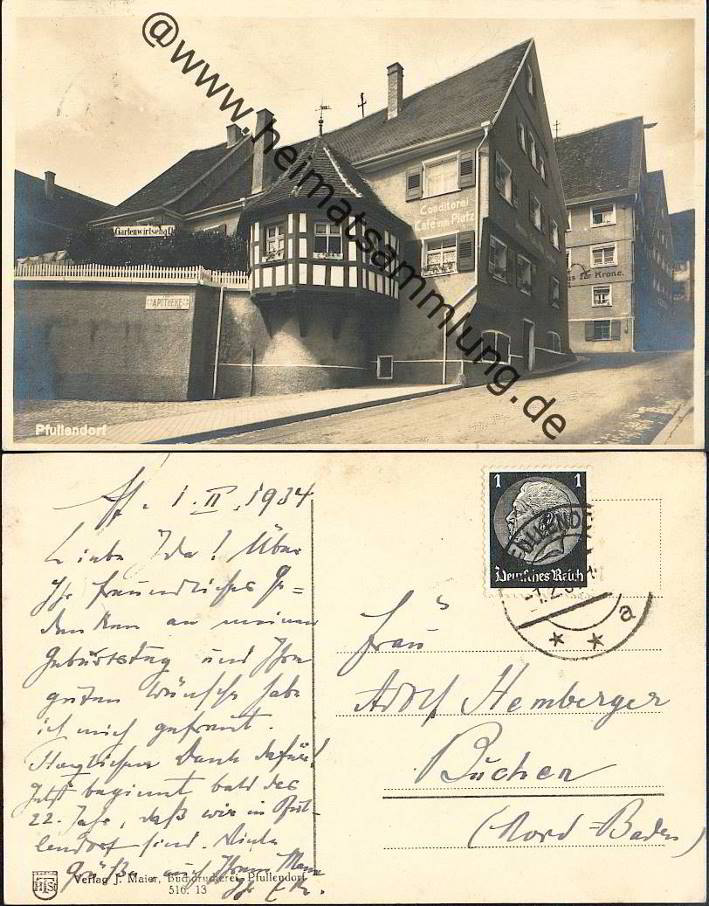 @www.heimatsammlung.de
Gartenwirtschaft
APOTHEKE
Conditorei
Café
Platz
zur Krone.
Pfullendorf
Pf. 1.II.1934
Liebe Ida! Über
Ihr freundliches Ge=
denken an meinen
Geburtstag und Ihre
guten Wünsche habe
ich mich gefreut.
Herzlichen Dank dafür!
Jetzt beginnt bald das
22. Jahr, daß wir in Pful-
lendorf sind. Viele
Grüße auch Ihrem Mann
Ihr
1 1
Deutsches Reich
a
Frau
Adolf Hemberger
Buchen
(Nord-Baden)
Verlag J. Maier, Buchdruckerei, Pfullendorf
516. 13